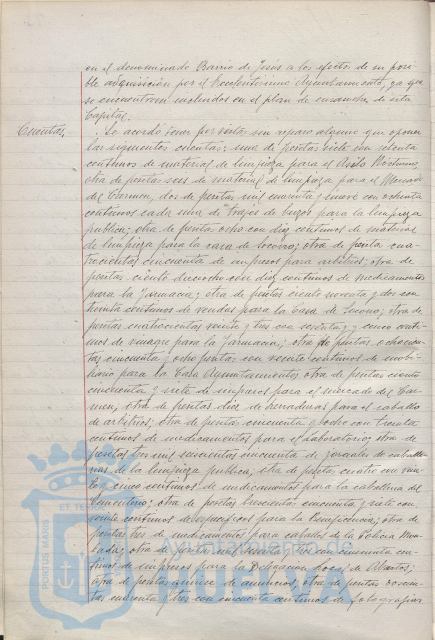 en el denominado Barrio de Jesús a los efectos de su posi-
ble adquisición por el Excelentísimo Ayuntamiento, ya que
se encuentran incluidos en el plan de ensanche de esta
Capital.
Cuentas. Se acordó tener por vistas sin reparo alguno que oponer
las siguientes cuentas: una de pesetas siete con setenta
centimos de material de limpieza para el Asilo Nocturno,
otra de pesetas seis de material de limpieza para el Mercado
del Carmen, dos de pesetas mil cuarenta y nueve con ochenta
centimos cada una de trajes de buzos para la limpieza
publica; otra de pesetas ocho con diez centimos de material
de limpieza para la casa de socorro; otra de pesetas cua-
trocientas cincuenta de impresos para arbitrios; otra de
pesetas ciento dieciocho con diez centimos de medicamentos
para la farmacia; otra de pesetas ciento noventa y dos con
treinta centimos de vendas para la Casa de Socorro; otra de
pesetas cuatrocientas veinte y tres con sesenta y cinco centi-
mos de vinagre para la farmacia; otra de pesetas ochocien-
tas cincuenta y ocho pesetas con veinte centimos de mobi-
liario para la Casa Ayuntamiento; otra de pesetas ciento
cincuenta y siete de impresos para el mercado del Car-
men, otra de pesetas diez de herraduras para el caballo
de arbitrios; otra de pesetas cincuenta y cuatro con treinta
centimos de medicamentos para el Laboratorio; otra de
pesetas tres mil seiscientas cincuenta de jornales de caballe-
rias de la limpieza publica; otra de pesetas cuatro con vein-
te cinco centimos de medicamentos para la caballeria del
Cementerio; otra de pesetas trescientas cincuenta y siete con
veinte centimos de especificos para la Beneficencia; otra de
pesetas tres de medicamentos para caballos de la Policia Mon-
tada; otra de pesetas mil sesenta y tres con cincuenta cen-
timos de impresos para la Delegacion local de Abastos;
otra de pesetas quince de anuncios; otra de pesetas
tas cuarenta y tres con cincuenta centimos de fotografias
PORTUS MARIS
ET TE